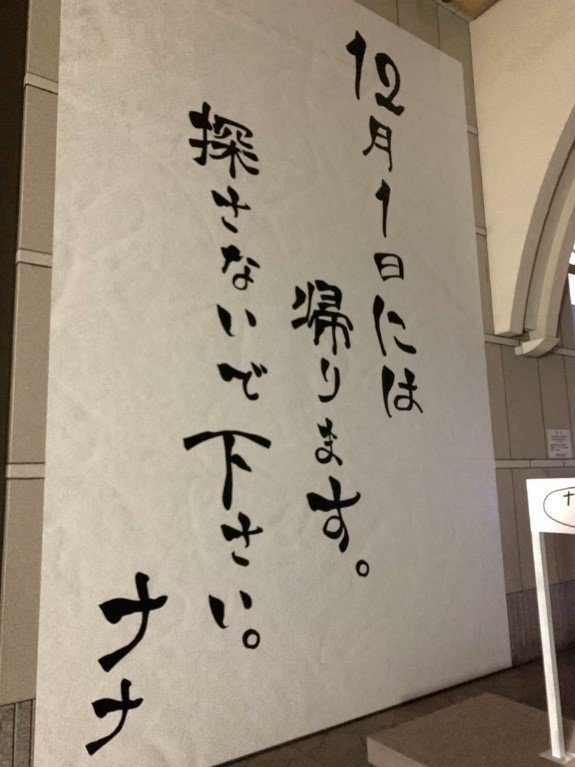 12月1日には
帰ります。
探さないで下さい。
ナナ
ナ